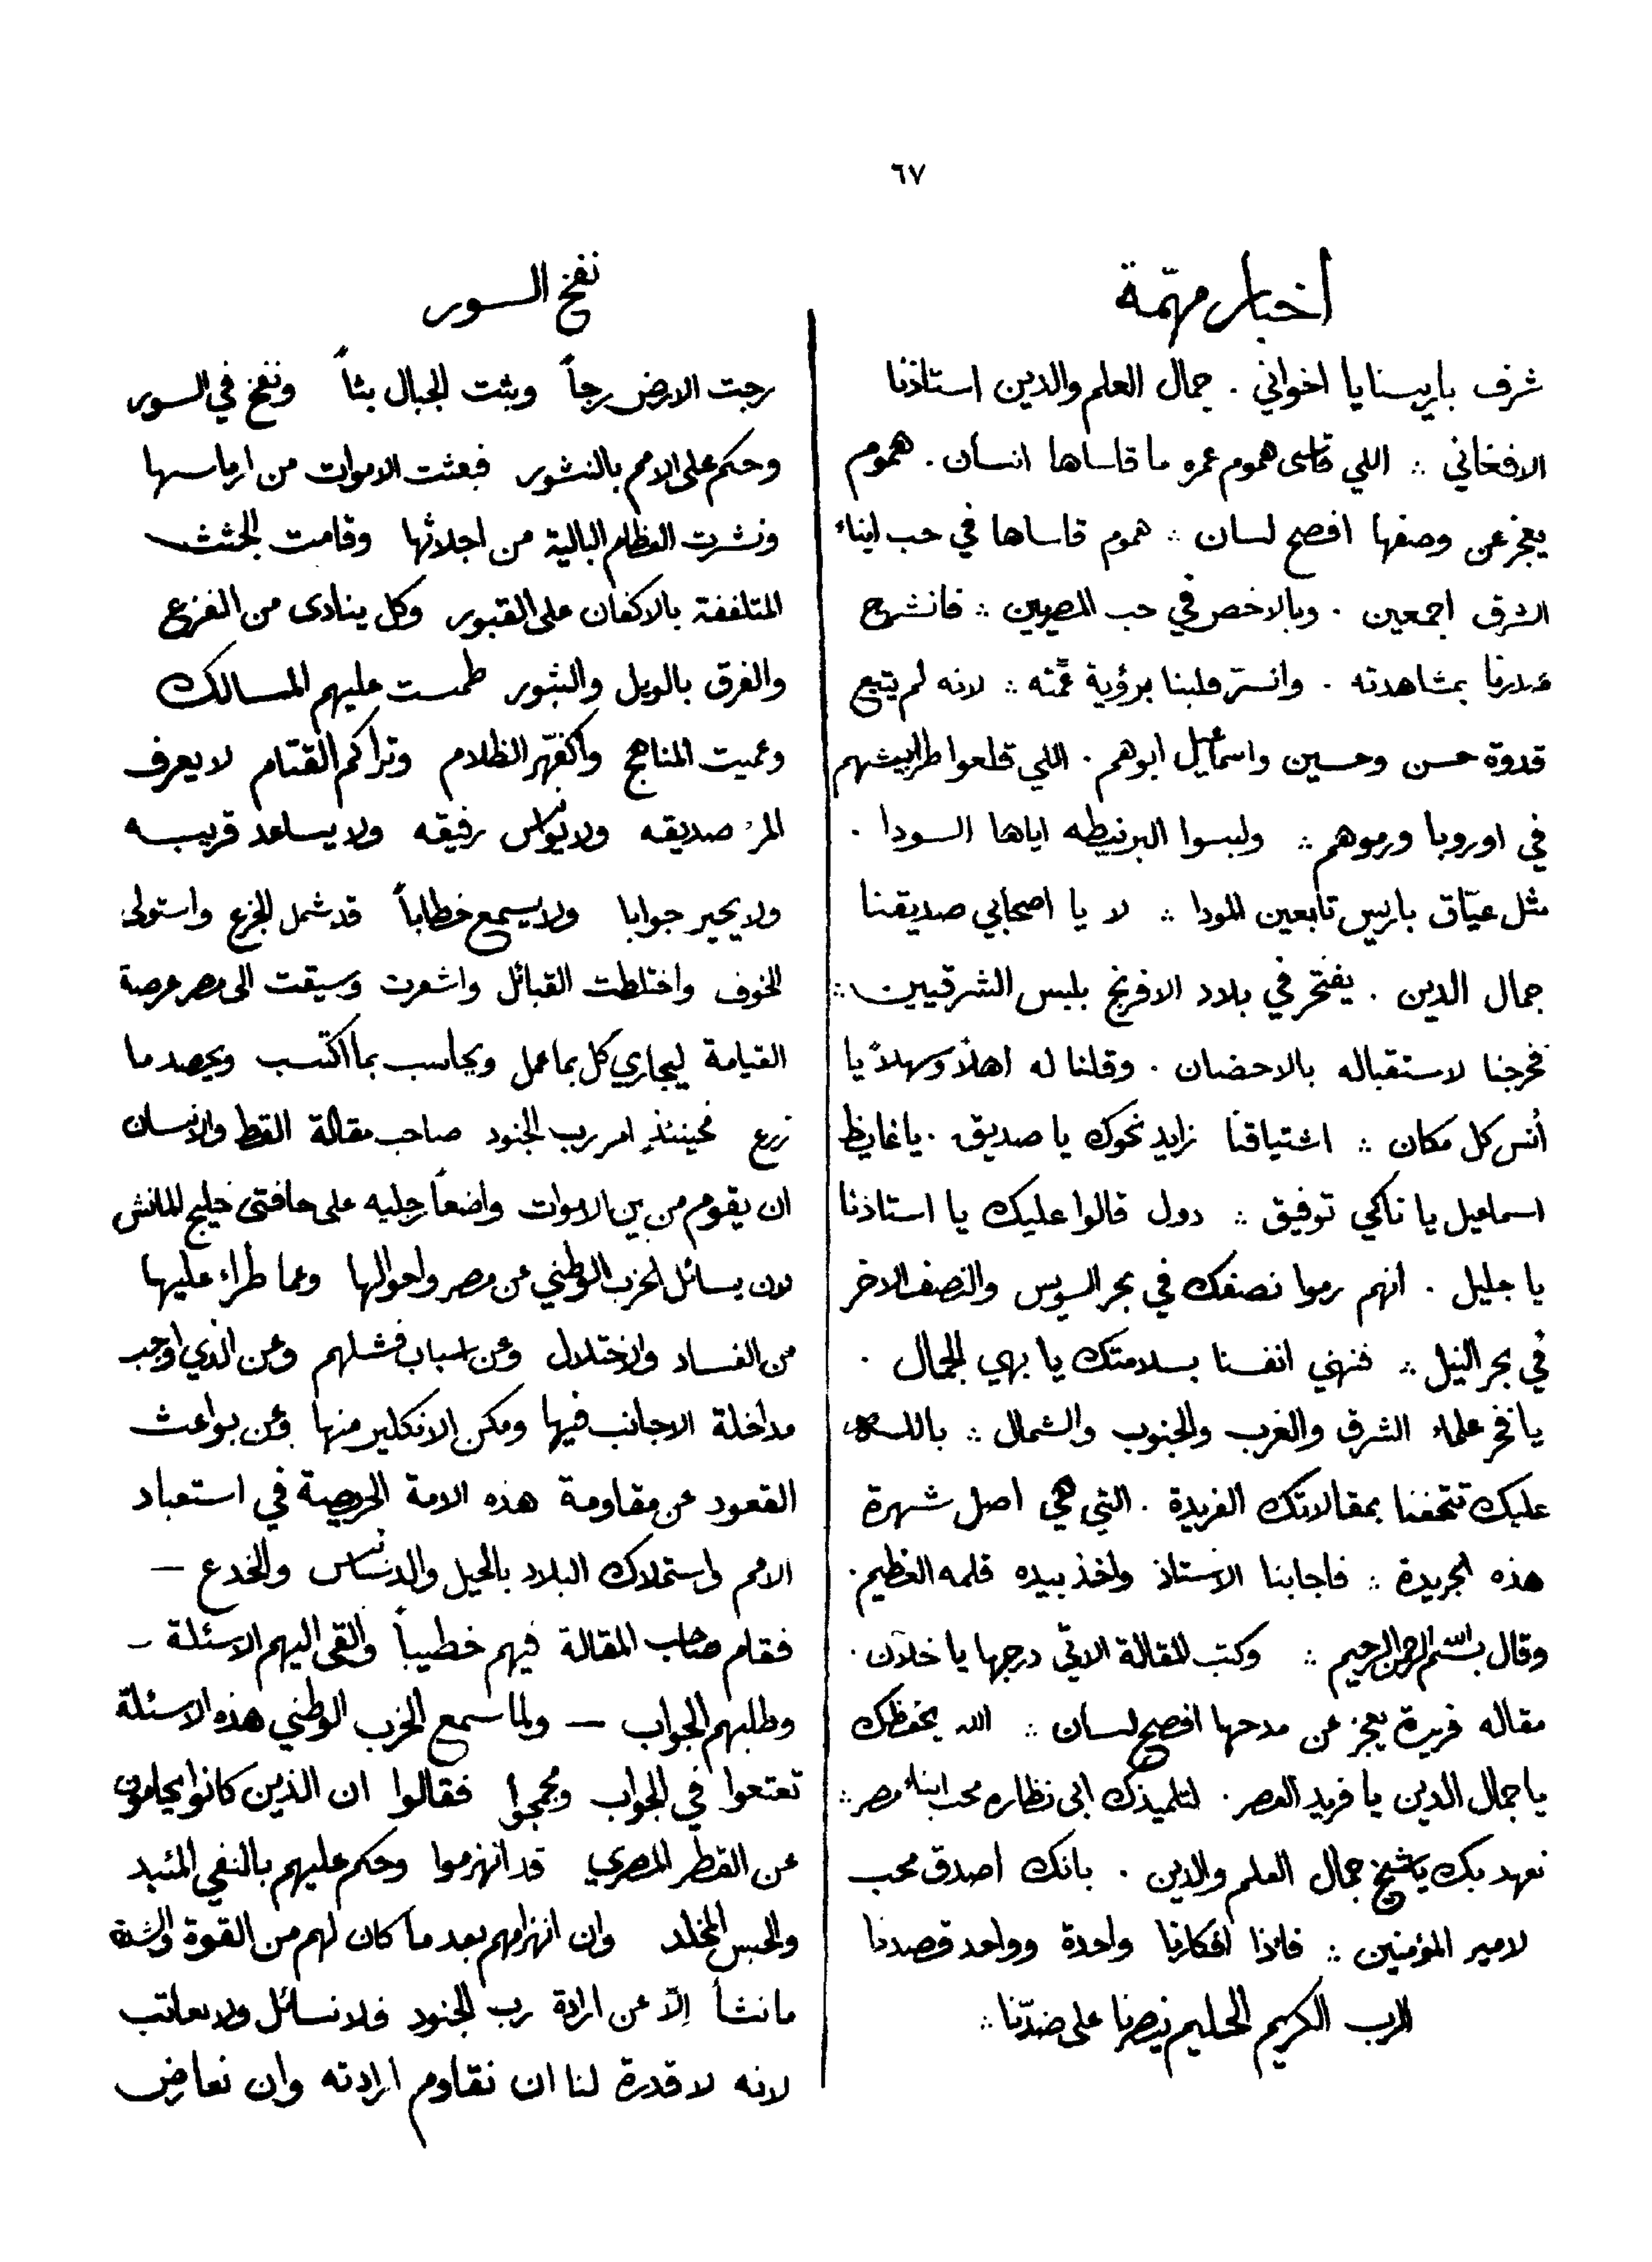 ٦٧
أخبار مهمّة
شرف باريسنا يا اخواني . جمال العلم والدين استاذنا
الافغاني ∴ اللي قاسى هموم عمره ما قاساها انسان . هموم
يعجز عن وصفها افصح لسان ∴ هموم قاساها في حب ابناء
الشرق اجمعين . وبالاخص في حب المصريين ∴ فانشرح
صدرنا بمشاهدته . وانسرّ قلبنا برؤية عمّته ∴ لانه لم يتبع
قدوة حسن وحسين واسماعيل ابوهم . اللي قلعوا طرابيشهم
في اوروبا ورموهم ∴ ولبسوا البرنيطه اياها السودا .
مثل عيّاق باريس تابعين المودا ∴ لا يا اصحابي صديقنا
جمال الدين . يفتخر في بلاد الافرنج بلبس الشرقيين ∴
فخرجنا لاستقباله بالاحضان . وقلنا له اهلاً وسهلاً يا
أنس كل مكان ∴ اشتياقنا زايد نحوك يا صديق . يا غايظ
اسماعيل يا ناكي توفيق ∴ دول قالوا عليك يا استاذنا
يا جليل . انهم رموا نصفك في بحر السويس والنصف الاخر
في بحر النيل ∴ فنهني انفسنا بسلامتك يا بهي الجمال .
يا فخر علماء الشرق والغرب والجنوب والشمال ∴ بالله
عليك تتحفنا بمقالاتك الفريدة . التي هي اصل شهرة
هذه الجريدة ∴ فاجابنا الاستاذ واخذ بيده قلمه العظيم .
وقال بسم الله الرحمن الرحيم ∴ وكتب المقالة الاتي درجها يا خلان .
مقاله فريدة يعجز عن مدحها افصح لسان ∴ الله يحفظك
يا جمال الدين يا فريد العصر . لتلميذك ابي نظاره محب ابناء مصر ∴
نعهد بك يا شيخ جمال العلم والدين . بانك اصدق محب
لامير المؤمنين ∴ فاذا افكارنا واحدة وواحد قصدنا
الرب الكريم الحليم ينصرنا على ضدّنا ∴
نفخ السور
رجت الارض رجاً وبثت الجبال بثاً ونفخ في السور
وحكم على الامم بالنشور فبعثت الاموات من ارماسها
ونشرت العظام البالية من اجداثها وقامت الجثث
المتلففة بالاكفان على القبور وكل ينادى من الفزع
والفرق بالويل والثبور طمست عليهم المسالك
وعميت المناهج واكفهّر الظلام وتراكم القتام لا يعرف
المرء صديقه ولا يواسي رفيقه ولا يساعد قريبه
ولا يحير جوابا ولا يسمع خطاباً قد شمل الجزع واستولى
الخوف واختلطت القبائل واشعرت وسيقت الى مصر عرصة
القيامة ليجازي كل بما عمل ويحاسب بما اكتسب ويحصد ما
زرع فحينئذٍ امر رب الجنود صاحب مقالة القط والانسان
ان يقوم من بين الاموات واضعاً رجليه على حافتى خليج المانش
لان يسائل الحزب الوطني عن مصر واحوالها وعما طراء عليها
من الفساد والاختلال وعن اسباب فشلهم وعن الذي اوجب
مداخلة الاجانب فيها ومكن الانكليز منها وعن بواعث
القعود عن مقاومة هذه الامة الحريصة في استعباد
الامم واستملاك البلاد بالحيل والدسائس والخدع —
فقام صاحب المقالة فيهم خطيباً والقى اليهم الاسئلة —
وطلبهم الجواب — ولما سمع الحزب الوطني هذه الاسئلة
تعتعوا في الجواب ومجمجوا فقالوا ان الذين كانوا يحامون
عن القطر المصري قد انهزموا وحكم عليهم بالنفي المئبد
والحبس المخلد وان انهزامهم بعد ما كان لهم من القوة والشدة
ما نشأ إلاّ عن ارادة رب الجنود فلا نسائل ولا نعاتب
لانه لا قدرة لنا ان نقاوم ارادته وان نعارض